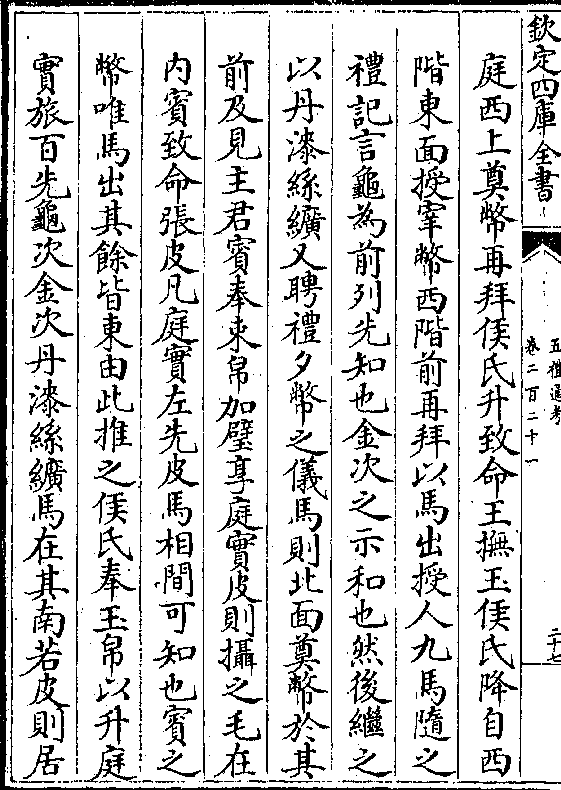 欽定四庫全書
五禮通考
卷二百二十一
二十七
庭西上奠幣再拜侯氏升致命王撫玉侯氏降自西
階東面授宰幣西階前再拜以馬出授人九馬隨之
禮記言龜為前列先知也金次之示和也然後繼之
以丹漆絲纊又聘禮夕幣之儀馬則北面奠幣於其
前及見主君賓奉束帛加璧享庭實皮則攝之毛在
内賓致命張皮凡庭實左先皮馬相間可知也賓之
幣唯馬出其餘皆東由此推之侯氏奉玉帛以升庭
實旅百先龜次金次丹漆絲纊馬在其南若皮則居